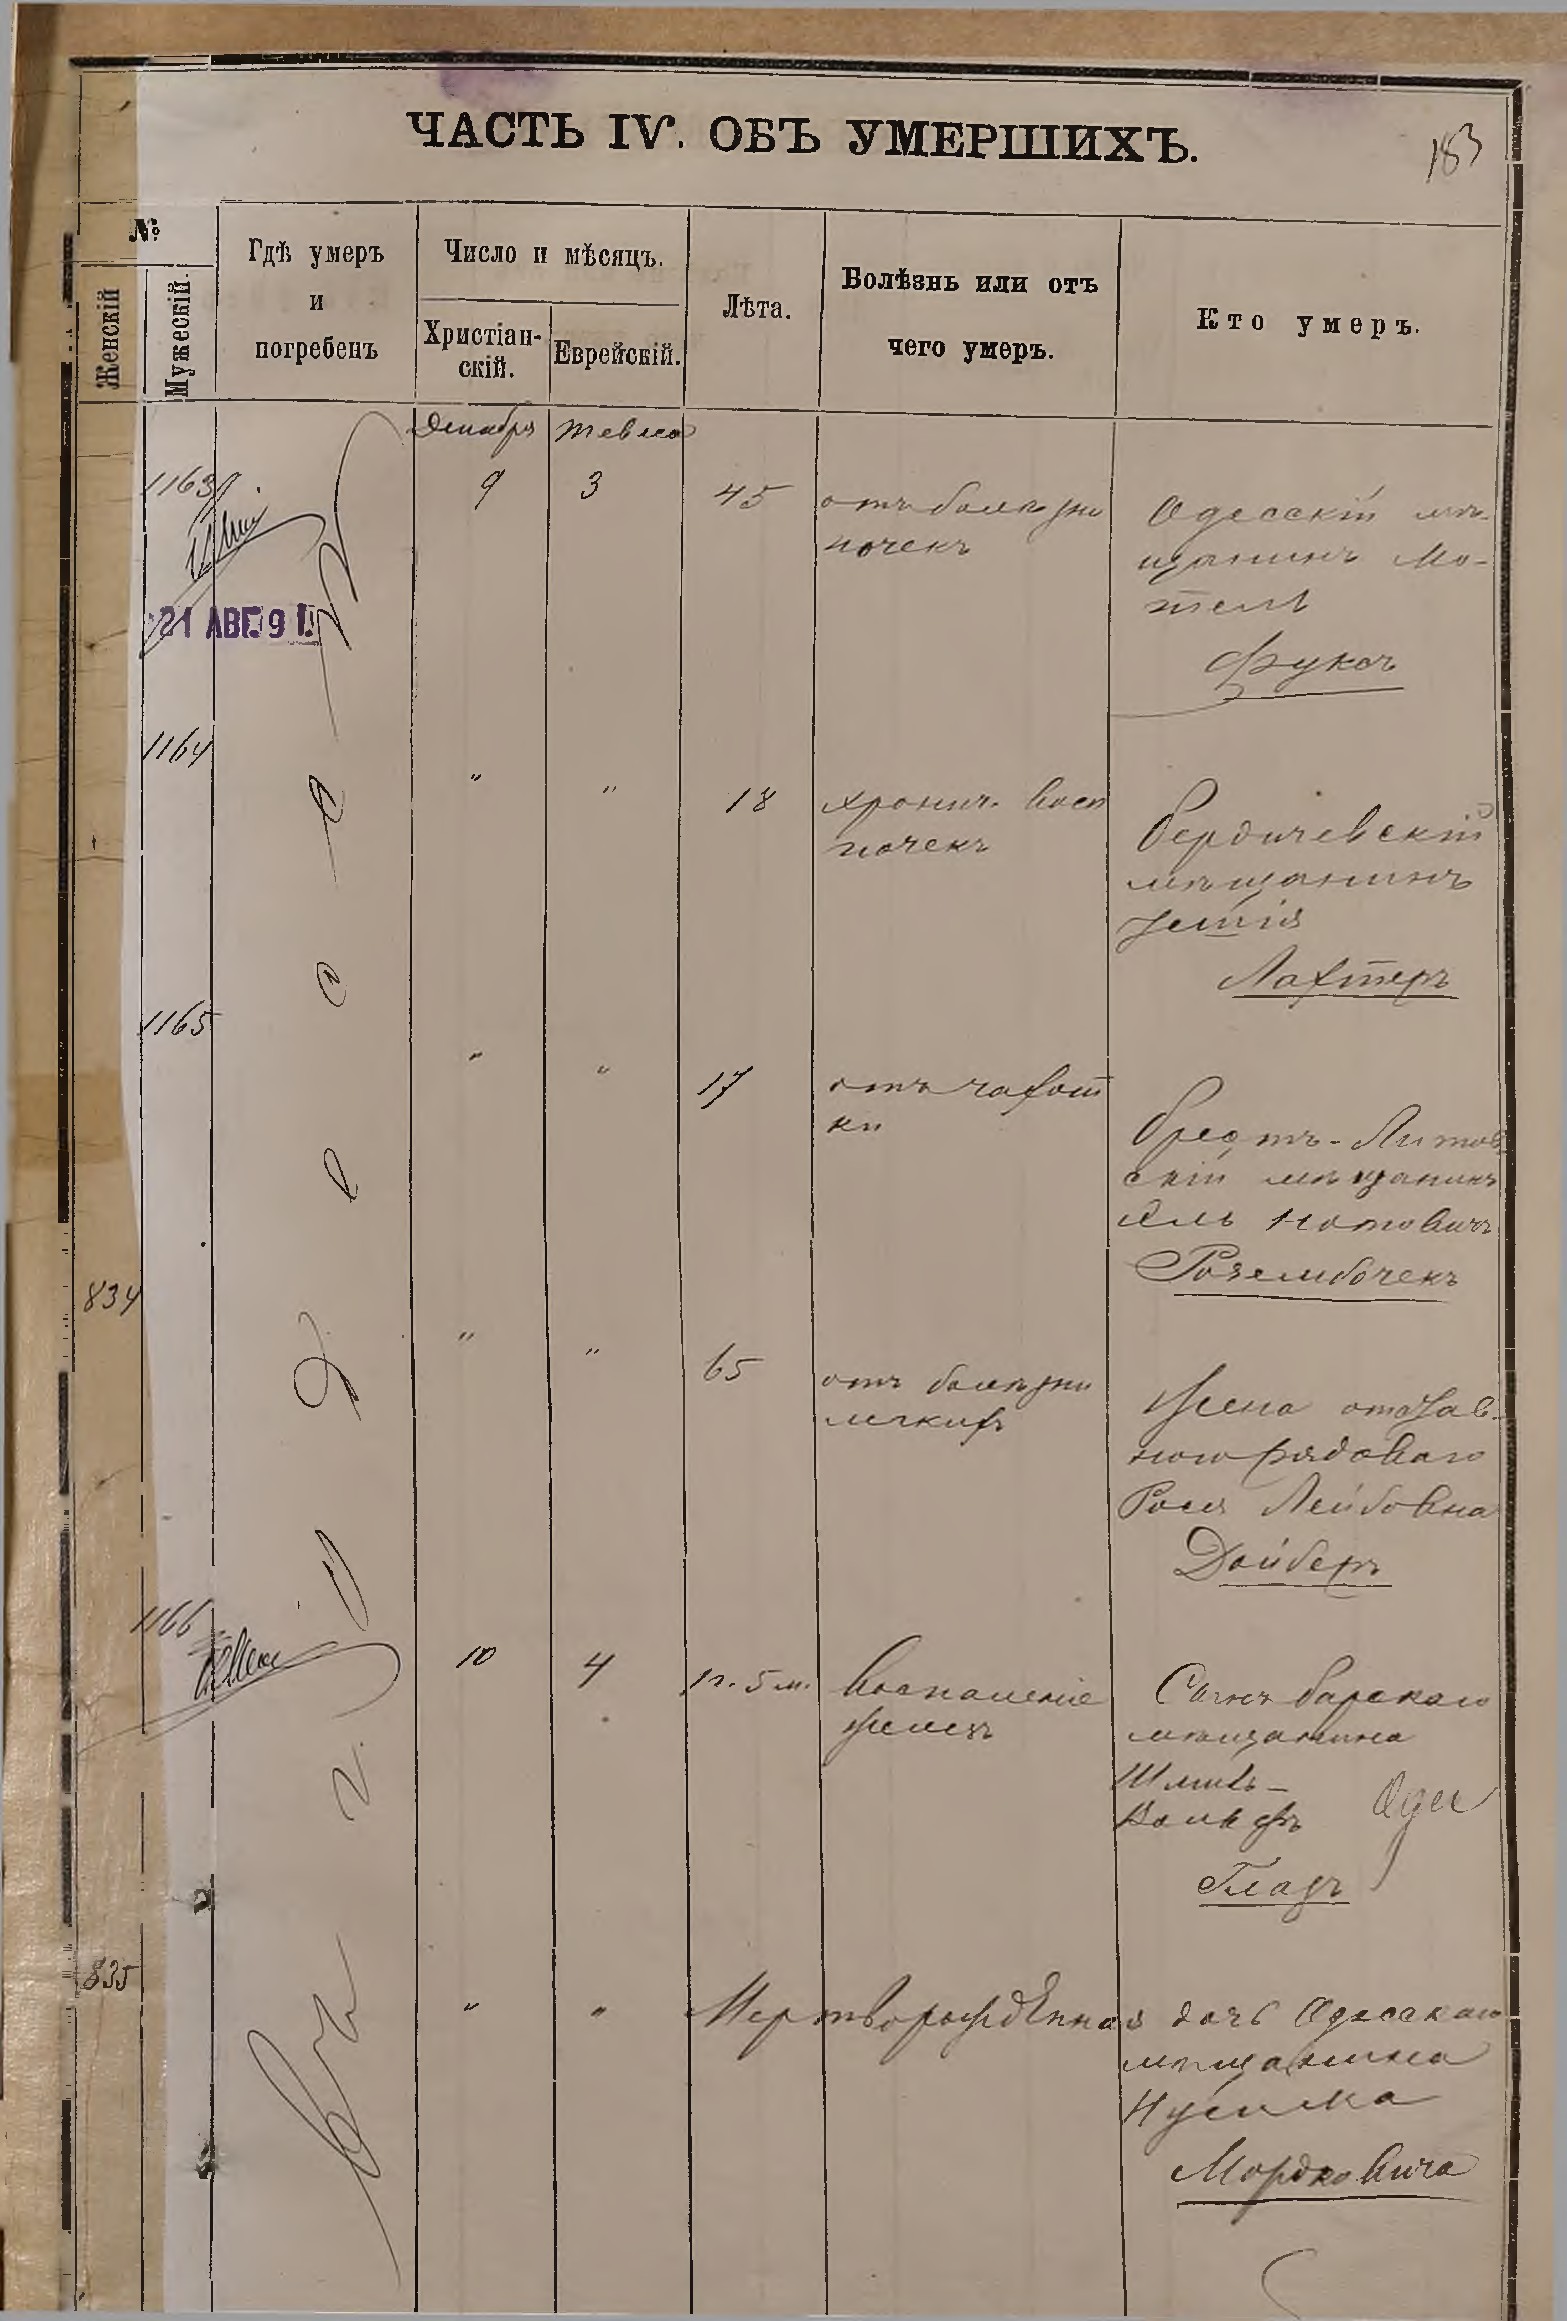 ЧАСТЬ IV. ОБЪ УМЕРШИХЪ.
183
№
Женскій
Мужескій.
Гдѣ умеръ
и
погребенъ
Число и мѣсяцъ.
Христіан-
скій.
Еврейскій.
Лѣта.
Болѣзнь или отъ
чего умеръ.
Кто умеръ.
Декабря
Тевеса
въ г. Одессѣ
1163
9
3
45
отъ болѣзни
почекъ
Одесскій мѣ-
щанинъ Мо-
тель
Фуксъ
21 АВГ. 91
1164
"
"
18
хронич. восп
почекъ
Бердичевскій
мѣщанинъ
Лахтеръ
1165
"
"
17
отъ чахот
ки
Брестъ-Литов
скій мѣщанинъ
834
"
"
65
отъ болѣзни
легкихъ
Жена отстав-
ного рядоваго
Рося Лейбовна
Дойберъ
1166
10
4
1 г. 5 м.
Воспаленіе
Сынъ барскаго
мѣщанина
Вольфъ
Глазъ
835
"
"
Мертворожденная дочь Одесскаго
мѣщанина
Мордковича